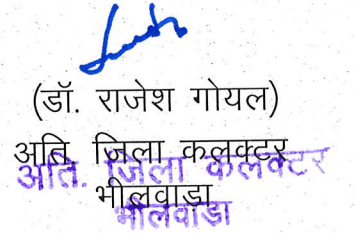 (डॉ. राजेश गोयल)
अति. जिला कलक्टर
भीलवाड़ा
अति. जिला कलक्टर
भीलवाड़ा